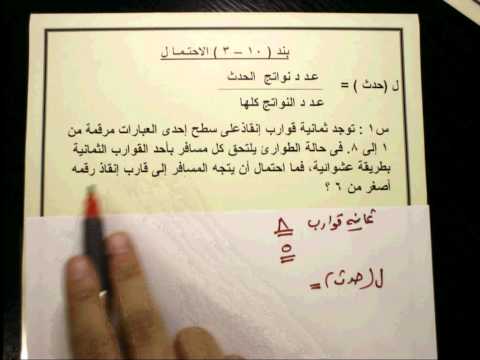 بند ( ١٠ – ٣ ) الاحتمـا ل
ل (حدث ) = عـد د نواتج الحدث
عـد د النواتج كلها
س١ : توجد ثمانية قوارب إنقاذعلى سطح إحدى العبارات مرقمة من
١ إلى ٨. فى حالة الطوارئ يلتحق كل مسافر بأحد القوارب الثمانية
بطريقة عشوائية، فما احتمال أن يتجه المسافر إلى قارب إنقاذ رقمه
أصغر من ٦ ؟
ثمانيه قوارب ٨
٥
ل (حدث) =